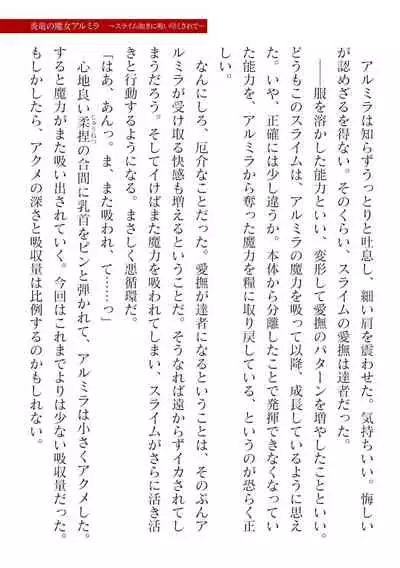 炎竜の魔女アルミラ　～スライム如きに吸い尽くされて～
アルミラは知らずうっとりと吐息し、細い肩を震わせた。気持ちいい。悔しい
が認めざるを得ない。そのくらい、スライムの愛撫は達者だった。
――服を溶かした能力といい、変形して愛撫のパターンを増やしたことといい。
どうもこのスライムは、アルミラの魔力を吸って以降、成長しているように思え
た。いや、正確には少し違うか。本体から分離したことで発揮できなくなってい
た能力を、アルミラから奪った魔力を糧に取り戻している、というのが恐らく正
しい。
なんにしろ、厄介なことだった。愛撫が達者になるということは、そのぶんア
ルミラが受け取る快感も増えるということだ。そうなれば遠からずイカされてし
まうだろう。そしてイけばまた魔力を吸われてしまい、スライムがさらに活き活
きと行動するようになる。まさしく悪循環だ。
「はあ、あんっ。ま、また吸われ、て……っ」
心地良い柔捏の合間に乳首をピンと弾かれて、アルミラは小さくアクメした。
すると魔力がまた吸い出されていく。今回はこれまでよりは少ない吸収量だった。
もしかしたら、アクメの深さと吸収量は比例するのかもしれない。